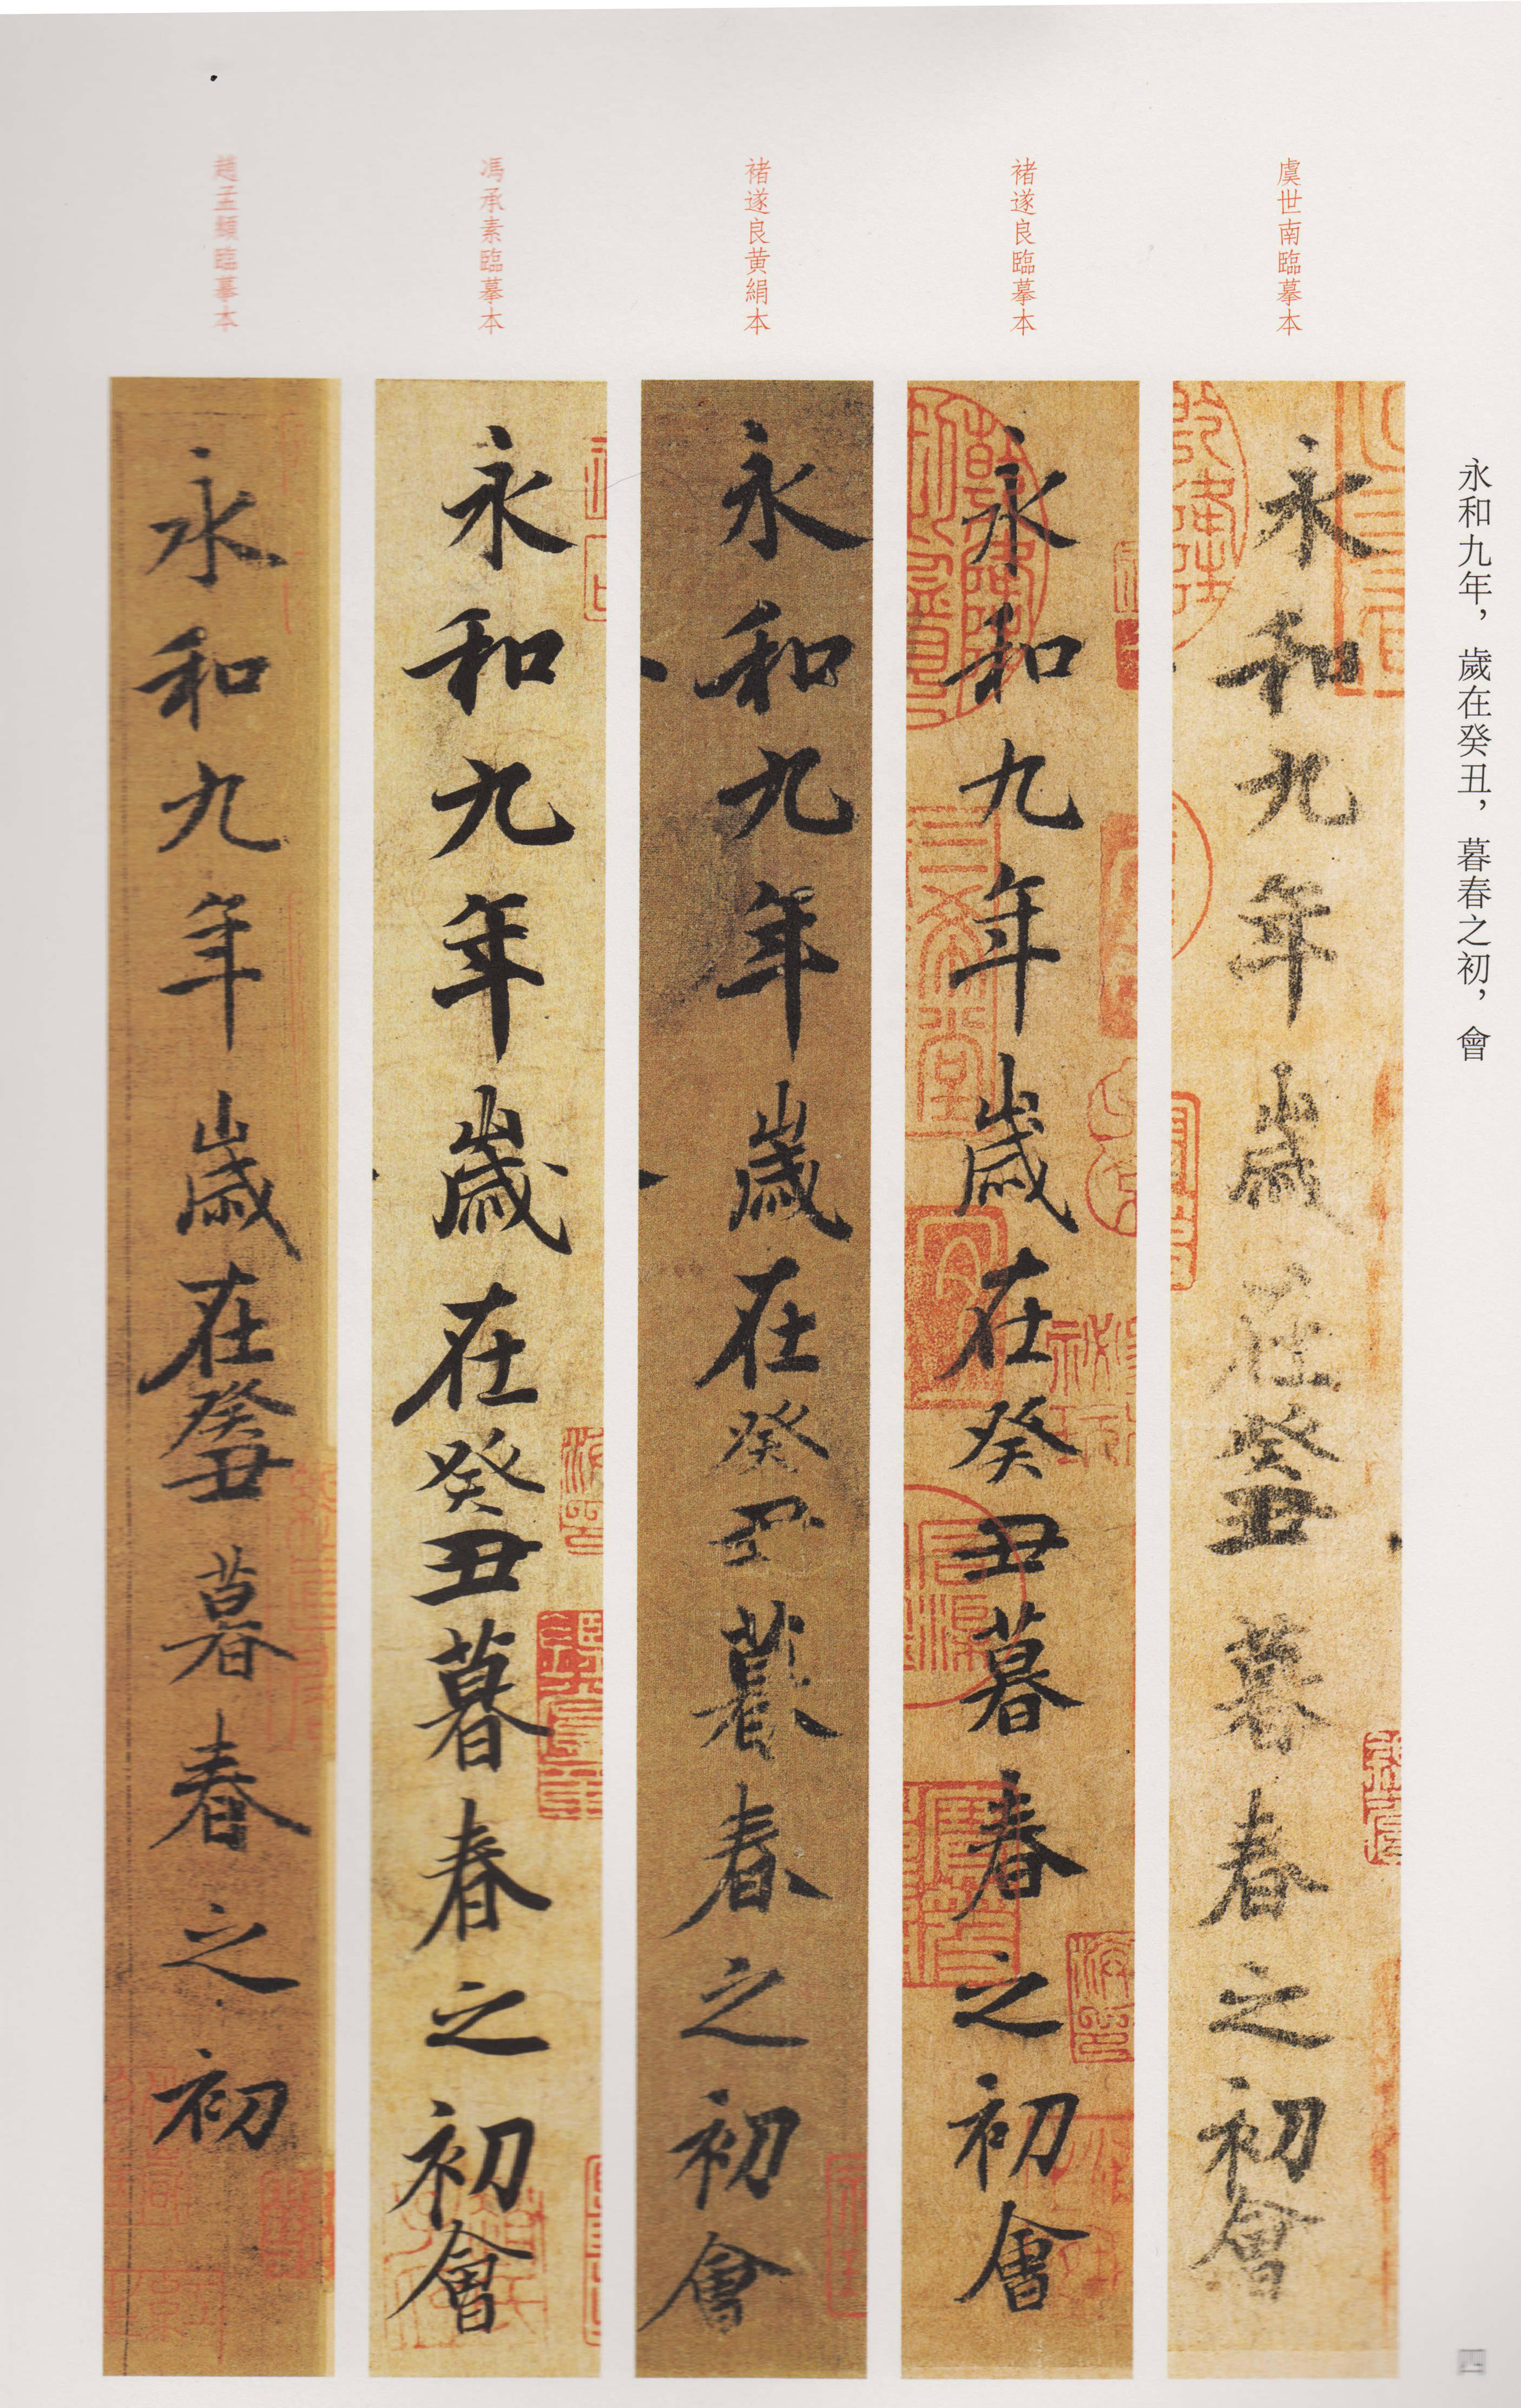 永和九年，歲在癸丑，暮春之初，會
虞世南臨摹本
永和九年歲在癸丑暮春之初會
褚遂良臨摹本
永和九年歲在癸丑暮春之初會
褚遂良黃絹本
永和九年歲在癸丑暮春之初會
馮承素臨摹本
永和九年歲在癸丑暮春之初會
趙孟頫臨摹本
永和九年歲在癸丑暮春之初
四